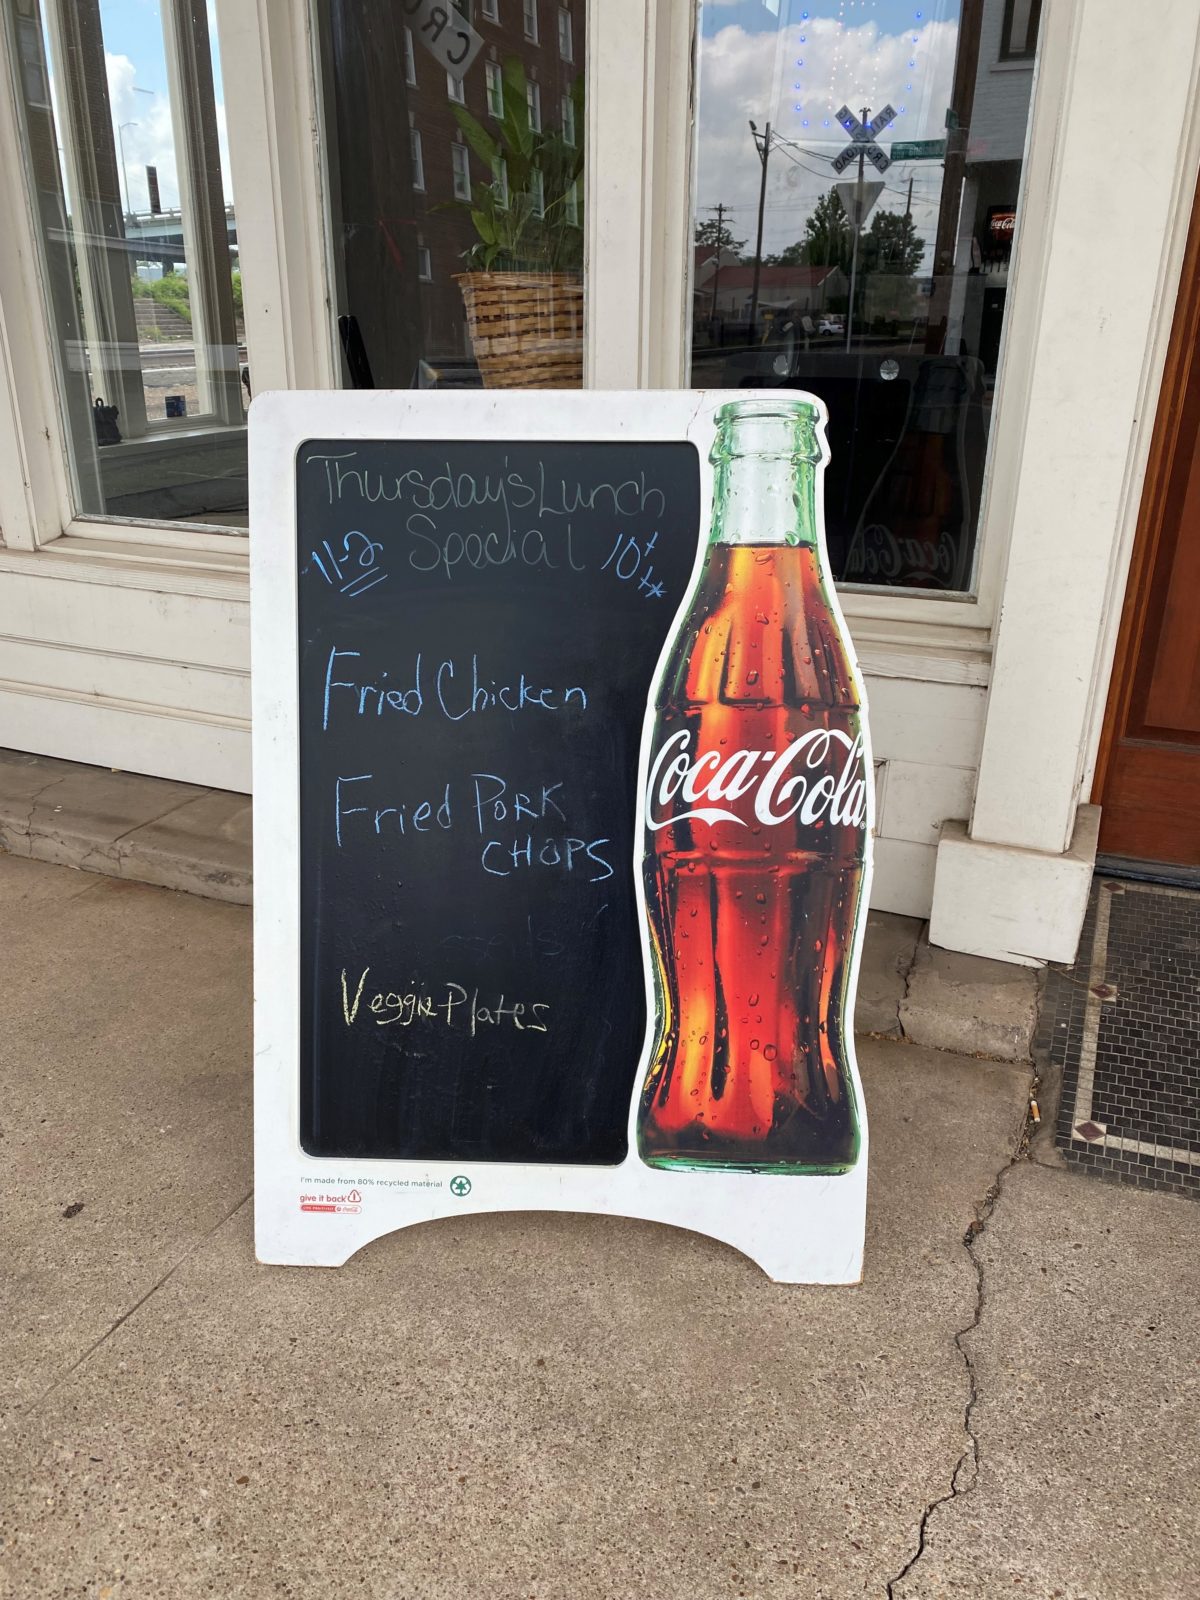 Thursday's Lunch
Special
11-2
10+
Fried Chicken
Fried PORK
CHOPS
Veggie Plates
Coca-Cola
I'm made from 80% recycled material
give it back